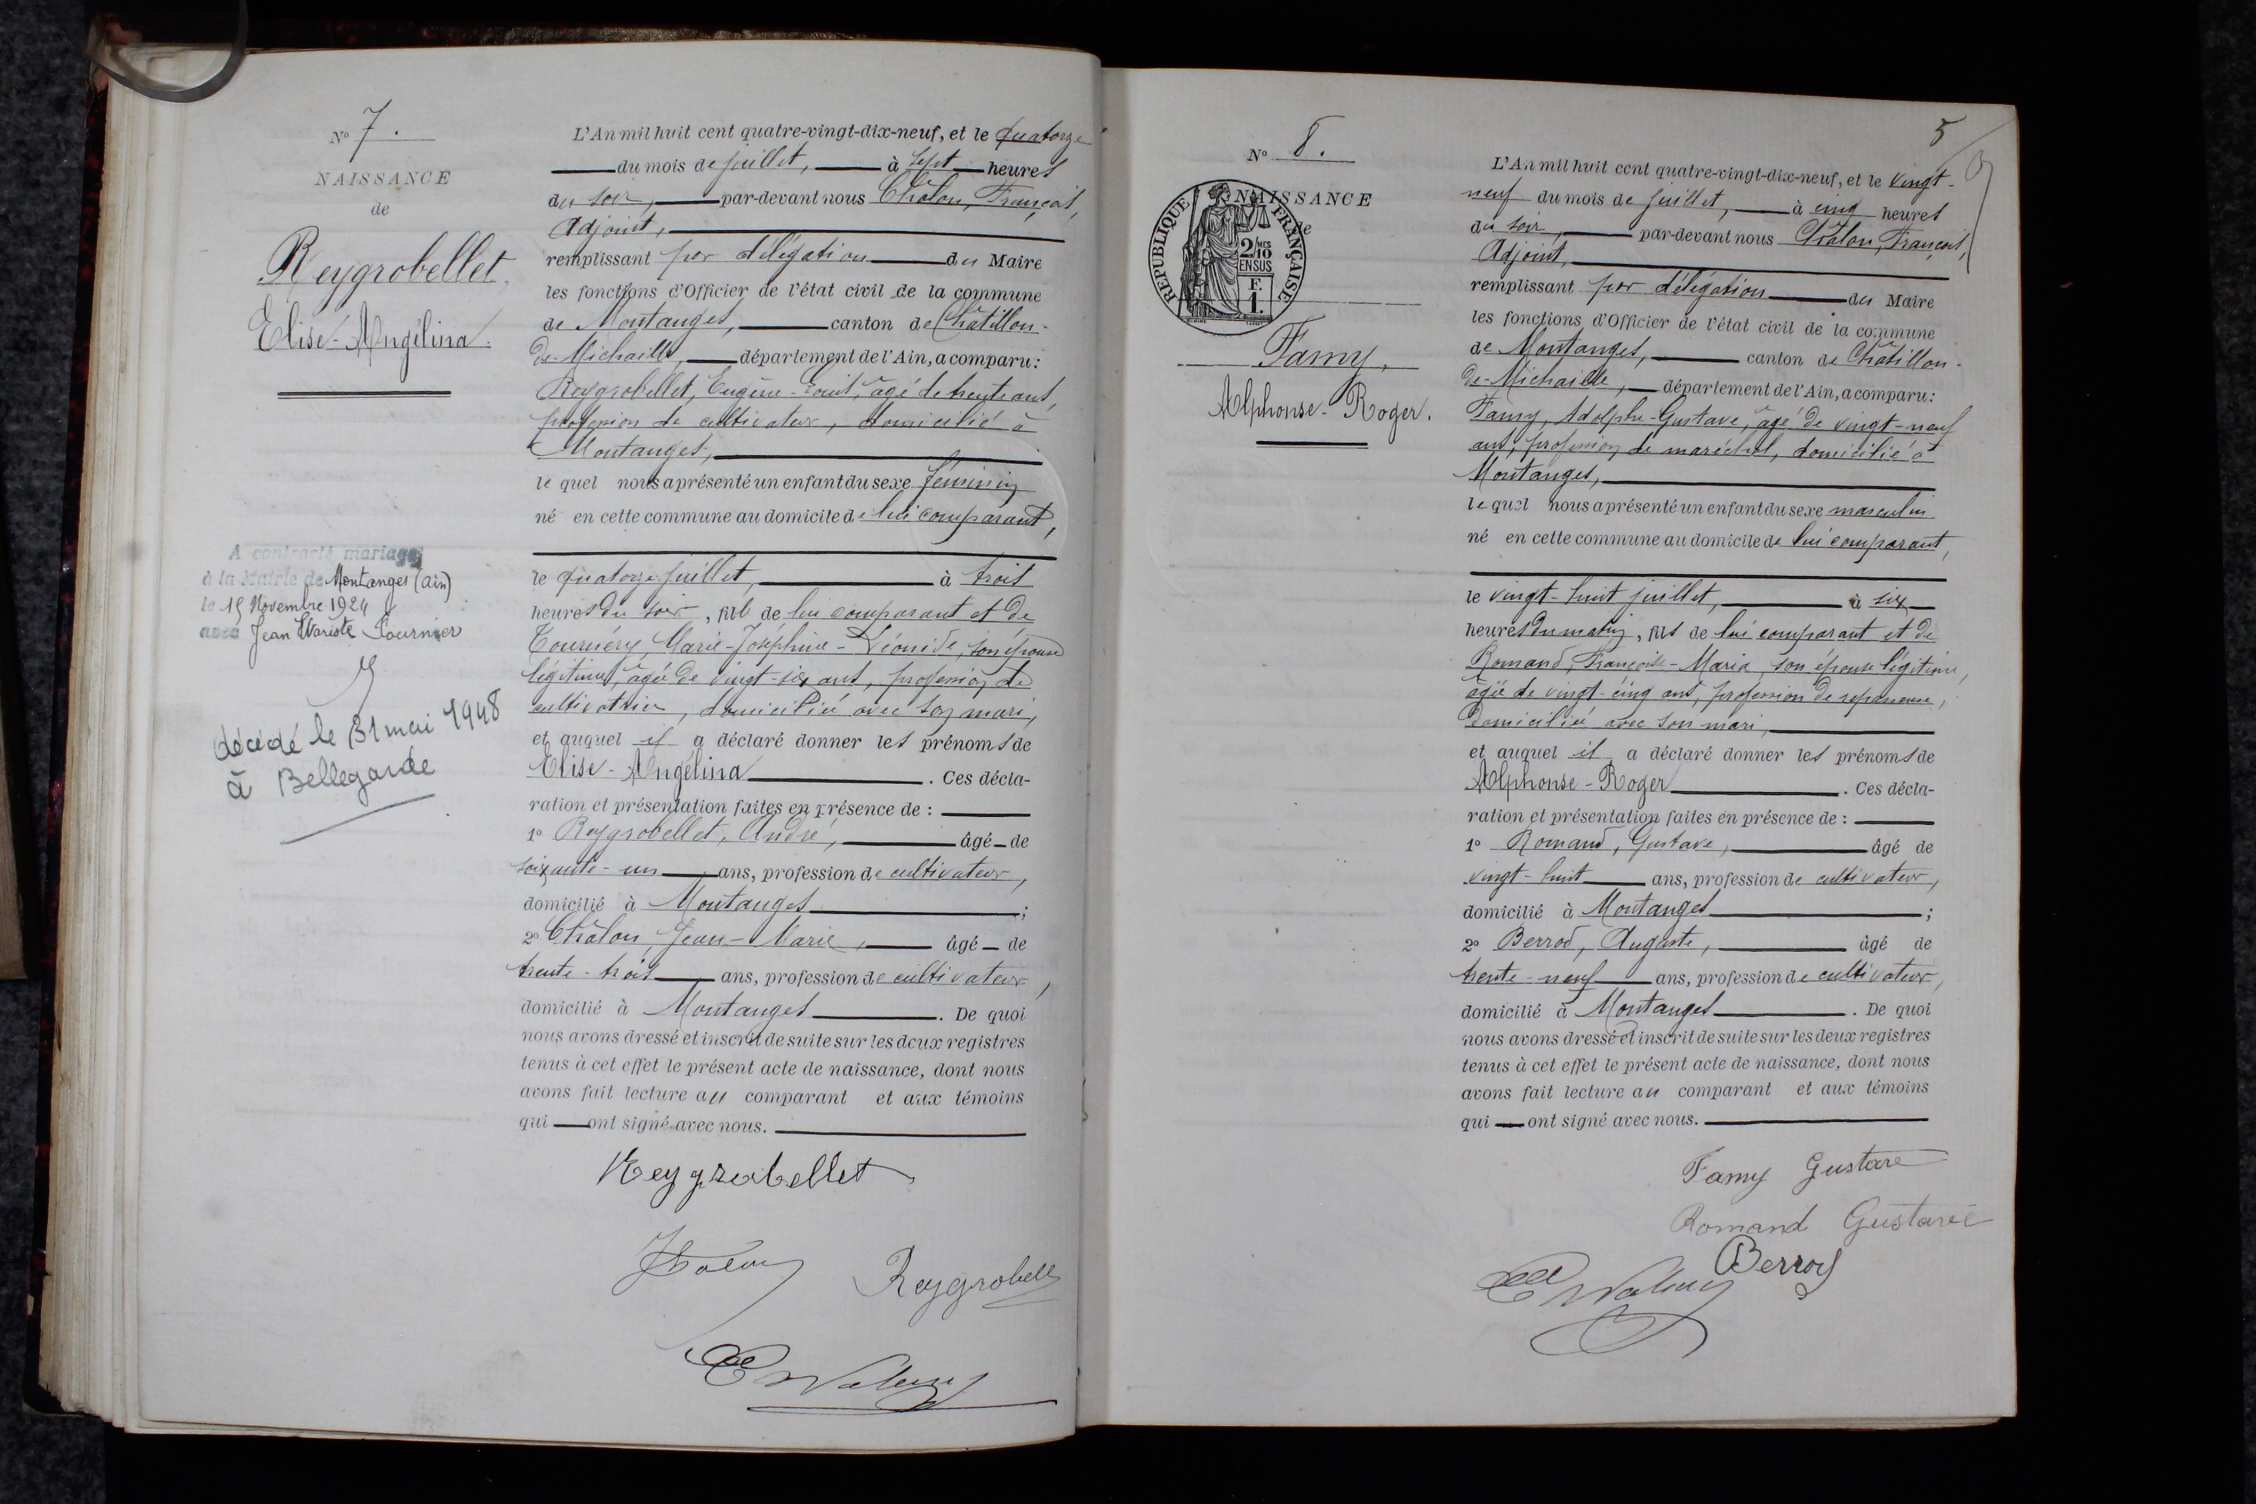 Nº 7.
NAISSANCE
de
Reygrobellet
Elise-Angélina.
A contracté mariage
à la Mairie de Montanges (Ain)
le 15 Novembre 1924
avec Jean Evariste Fournier
décédé le 31 mai 1948
à Bellegarde
L'An mil huit cent quatre-vingt-dix-neuf, et le quatorze
du mois de juillet, à sept heures
du soir, par-devant nous Châlon, François,
Adjoint,
remplissant par délégation du Maire
les fonctions d'Officier de l'état civil de la commune
de Montanges, canton de Châtillon-
de-Michaille, département de l'Ain, a comparu:
Reygrobellet, Eugène-Louis, âgé de trente ans,
profession de cultivateur, domicilié à
Montanges,
le quel nous a présenté un enfant du sexe féminin
né en cette commune au domicile de lui comparant,
le quatorze juillet, à trois
heures du soir, fille de lui comparant et de
Marie-Joséphine-Léonide, son épouse
légitime, âgée de vingt-six ans, profession de
cultivatrice, domiciliée avec son mari,
et auquel il a déclaré donner les prénoms de
Elise-Angélina. Ces décla-
ration et présentation faites en présence de :
1º Reygrobellet, André, âgé de
soixante-un ans, profession de cultivateur,
domicilié à Montanges;
2º Châlon, Jean-Marie, âgé de
trente-trois ans, profession de cultivateur,
domicilié à Montanges. De quoi
nous avons dressé et inscrit de suite sur les deux registres
tenus à cet effet le présent acte de naissance, dont nous
avons fait lecture au comparant et aux témoins
qui ont signé avec nous.
Reygrobellet
Reygrobell
5
Nº 8.
NAISSANCE
de
REPUBLIQUE FRANÇAISE
2/10 MES
EN SUS
F.
1.
Famy,
Alphonse-Roger.
L'An mil huit cent quatre-vingt-dix-neuf, et le vingt-
neuf du mois de juillet, à cinq heures
du soir, par-devant nous Châlon, François,
Adjoint,
remplissant par délégation du Maire
les fonctions d'Officier de l'état civil de la commune
de Montanges, canton de Châtillon-
de-Michaille, département de l'Ain, a comparu:
Famy, Adolphe-Gustave, âgé de vingt-neuf
ans, profession de maréchal, domicilié à
Montanges,
le quel nous a présenté un enfant du sexe masculin
né en cette commune au domicile de lui comparant,
le vingt-huit juillet, à six
heures du matin, fils de lui comparant et de
Romand, Françoise-Maria, son épouse légitime,
âgée de vingt-cinq ans, profession de repasseuse,
domiciliée avec son mari,
et auquel il a déclaré donner les prénoms de
Alphonse-Roger. Ces décla-
ration et présentation faites en présence de :
1º Romand, Gustave, âgé de
vingt-huit ans, profession de cultivateur,
domicilié à Montanges;
2º Berrod, Auguste, âgé de
trente-neuf ans, profession de cultivateur,
domicilié à Montanges. De quoi
nous avons dressé et inscrit de suite sur les deux registres
tenus à cet effet le présent acte de naissance, dont nous
avons fait lecture au comparant et aux témoins
qui ont signé avec nous.
Famy Gustave
Romand Gustave
Berrod